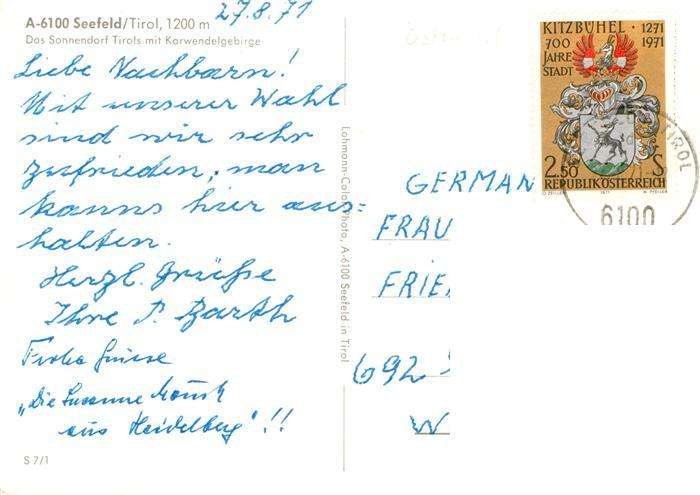 27.8.71
A-6100 Seefeld/Tirol, 1200 m
Das Sonnendorf Tirols mit Karwendelgebirge
Liebe Nachbarn!
Mit unserer Wahl
sind wir sehr
zufrieden, man
kanns hier aus=
halten.
Herzl. Grüße
Ihre P. Barth
Frohe Grüsse
„Die Susanne
aus Heidelberg"!!
S 7/1
Lohmann-Color-Photo, A-6100 Seefeld in Tirol
KITZBÜHEL · 1271
700 1971
JAHRE
STADT
2.50 S
REPUBLIK ÖSTERREICH
1971
TIROL
6100
GERMAN
FRAU
FRIE
692
W